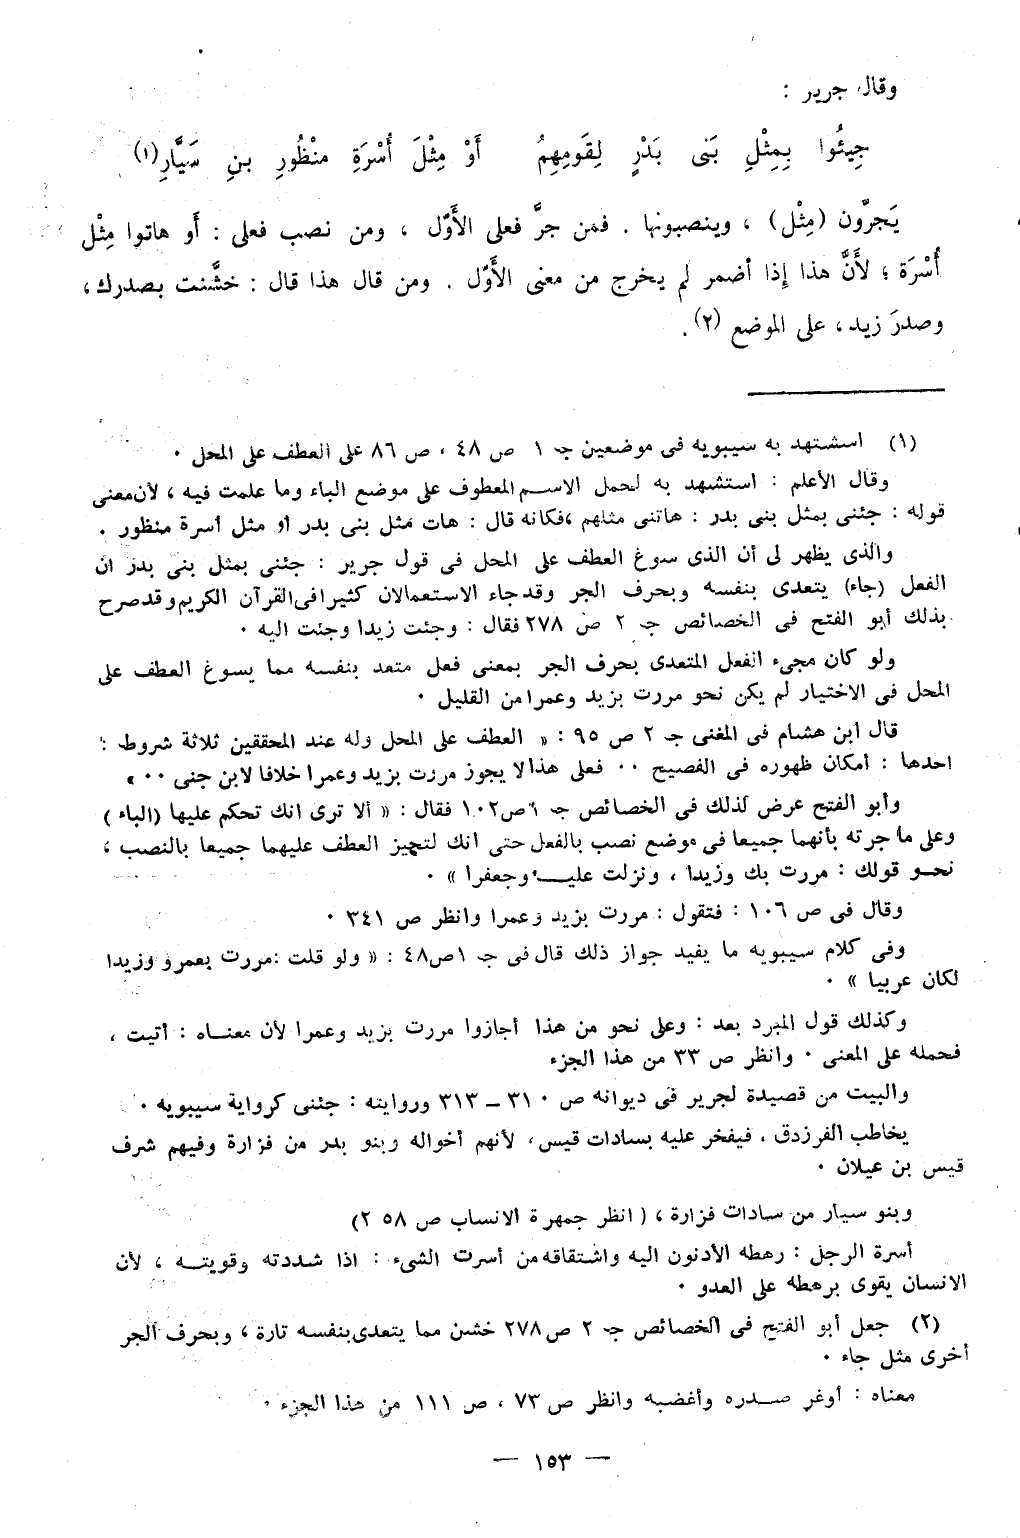 وقال جرير :
جِيئُوا بِمِثْلِ بَنى بَدْرٍ لِقَومِهِمُ أَوْ مِثْلَ أُسْرَةِ منْظُورِ بنِ سَيَّارِ(١)
يَجرُّون (مِثْل) ، وينصبونها . فمن جرَّ فعلى الأَوّل ، ومن نصب فعلى : أَو هاتوا مِثْل
أُسْرَة ؛ لأَنَّ هذا إِذا أضمر لم يخرج من معنى الأَوّل . ومن قال هذا قال : خشَّنت بصدرك ،
وصدرَ زيد ، على الموضع (٢) .
(١) استشهد به سيبويه فى موضعين جـ ١ ص ٤٨ ، ص ٨٦ على العطف على المحل ٠
وقال الأعلم : استشهد به لحمل الاسم المعطوف على موضع الباء وما علمت فيه ، لأن معنى
قوله : جئنى بمثل بنى بدر : هاتنى مثلهم ، فكانه قال : هات مثل بنى بدر أو مثل أسرة منظور .
والذى يظهر لى أن الذى سوغ العطف على المحل فى قول جرير : جئنى بمثل بنى بدر ان
الفعل (جاء) يتعدى بنفسه وبحرف الجر وقد جاء الاستعمالان كثيرا فى القرآن الكريم وقد صرح
بذلك أبو الفتح فى الخصائص جـ ٢ ص ٢٧٨ فقال : وجئت زيدا وجئت اليه ٠
ولو كان مجىء الفعل المتعدى بحرف الجر بمعنى فعل متعد بنفسه مما يسوغ العطف على
المحل فى الاختيار لم يكن نحو مررت بزيد وعمرا من القليل ٠
قال ابن هشام فى المغنى جـ ٢ ص ٩٥ : « العطف على المحل وله عند المحققين ثلاثة شروط :
احدها : أمكان ظهوره فى الفصيح ٠٠ فعلى هذا لا يجوز مررت بزيد وعمرا خلافا لابن جنى ٠٠ »
وأبو الفتح عرض لذلك فى الخصائص جـ ١ ص ١٠٢ فقال : « ألا ترى انك تحكم عليها (الباء)
وعلى ما جرته بأنهما جميعا فى موضع نصب بالفعل حتى انك لتجيز العطف عليهما جميعا بالنصب ،
نحو قولك : مررت بك وزيدا ، ونزلت عليه وجعفرا » ٠
وقال فى ص ١٠٦ : فتقول : مررت بزيد وعمرا وانظر ص ٣٤١ ٠
وفى كلام سيبويه ما يفيد جواز ذلك قال فى جـ ١ ص ٤٨ : « ولو قلت : مررت بعمرو وزيدا
لكان عربيا » ٠
وكذلك قول المبرد بعد : وعلى نحو من هذا أجازوا مررت بزيد وعمرا لأن معناه : أتيت ،
فحمله على المعنى ٠ وانظر ص ٣٣ من هذا الجزء
والبيت من قصيدة لجرير فى ديوانه ص ٣١٠ – ٣١٣ وروايته : جئنى كرواية سيبويه ٠
يخاطب الفرزدق ، فيفخر عليه بسادات قيس ، لأنهم أخواله وبنو بدر من فزارة وفيهم شرف
قيس بن عيلان ٠
وبنو سيار من سادات فزارة ، ( انظر جمهرة الانساب ص ٢٥٨ )
أسرة الرجل : رهطه الأدنون اليه واشتقاقه من أسرت الشىء : اذا شددته وقويته ، لأن
الانسان يقوى برهطه على العدو ٠
(٢) جعل أبو الفتح فى الخصائص جـ ٢ ص ٢٧٨ خشن مما يتعدى بنفسه تارة ، وبحرف الجر
أخرى مثل جاء ٠
معناه : أوغر صدره وأغضبه وانظر ص ٧٣ ، ص ١١١ من هذا الجزء ٠
— ١٥٣ —